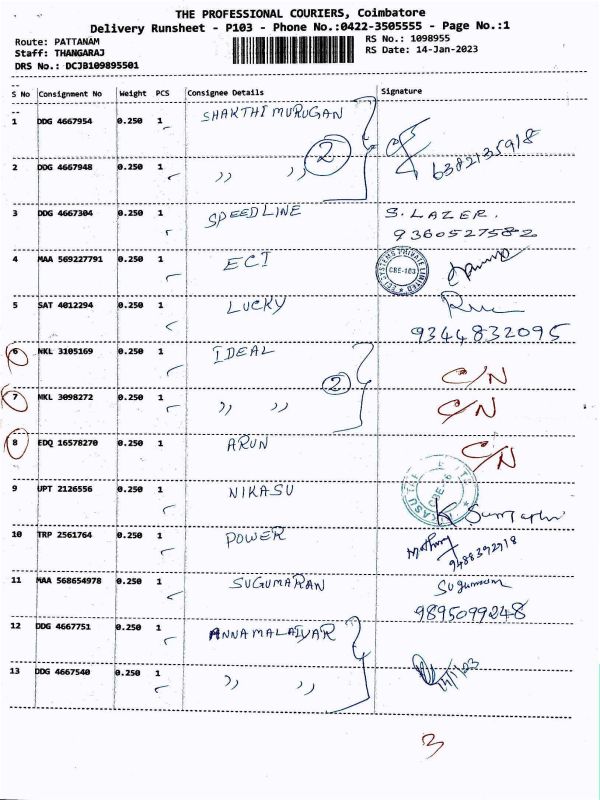 THE PROFESSIONAL COURIERS, Coimbatore
Delivery Runsheet - P103 - Phone No.:0422-3505555 - Page No.:1
Route: PATTANAM RS No.: 1098955
Staff: THANGARAJ RS Date: 14-Jan-2023
DRS No.: DCJB109895501
S No Consignment No Weight PCS Consignee Details Signature
1 DDG 4667954 0.250 1 SHAKTHI MURUGAN
2 6382135918
2 DDG 4667948 0.250 1 ,, ,,
3 DDG 4667304 0.250 1 SPEED LINE S. LAZER.
9360527582
4 MAA 569227791 0.250 1 ECI SYSTEMS PRIVATE LIMITED CBE-103
5 SAT 4012294 0.250 1 LUCKY
9344832095
6 NKL 3105169 0.250 1 IDEAL C/N
2
7 NKL 3098272 0.250 1 ,, ,, C/N
8 EDQ 16578270 0.250 1 ARUN C/N
9 UPT 2126556 0.250 1 NIKASU
10 TRP 2561764 0.250 1 POWER
9488392918
11 MAA 568654978 0.250 1 SUGUMARAN Sugumaran
9895099248
12 DDG 4667751 0.250 1 ANNAMALAIYAR
13 DDG 4667540 0.250 1 ,, ,, 14/1/23
3